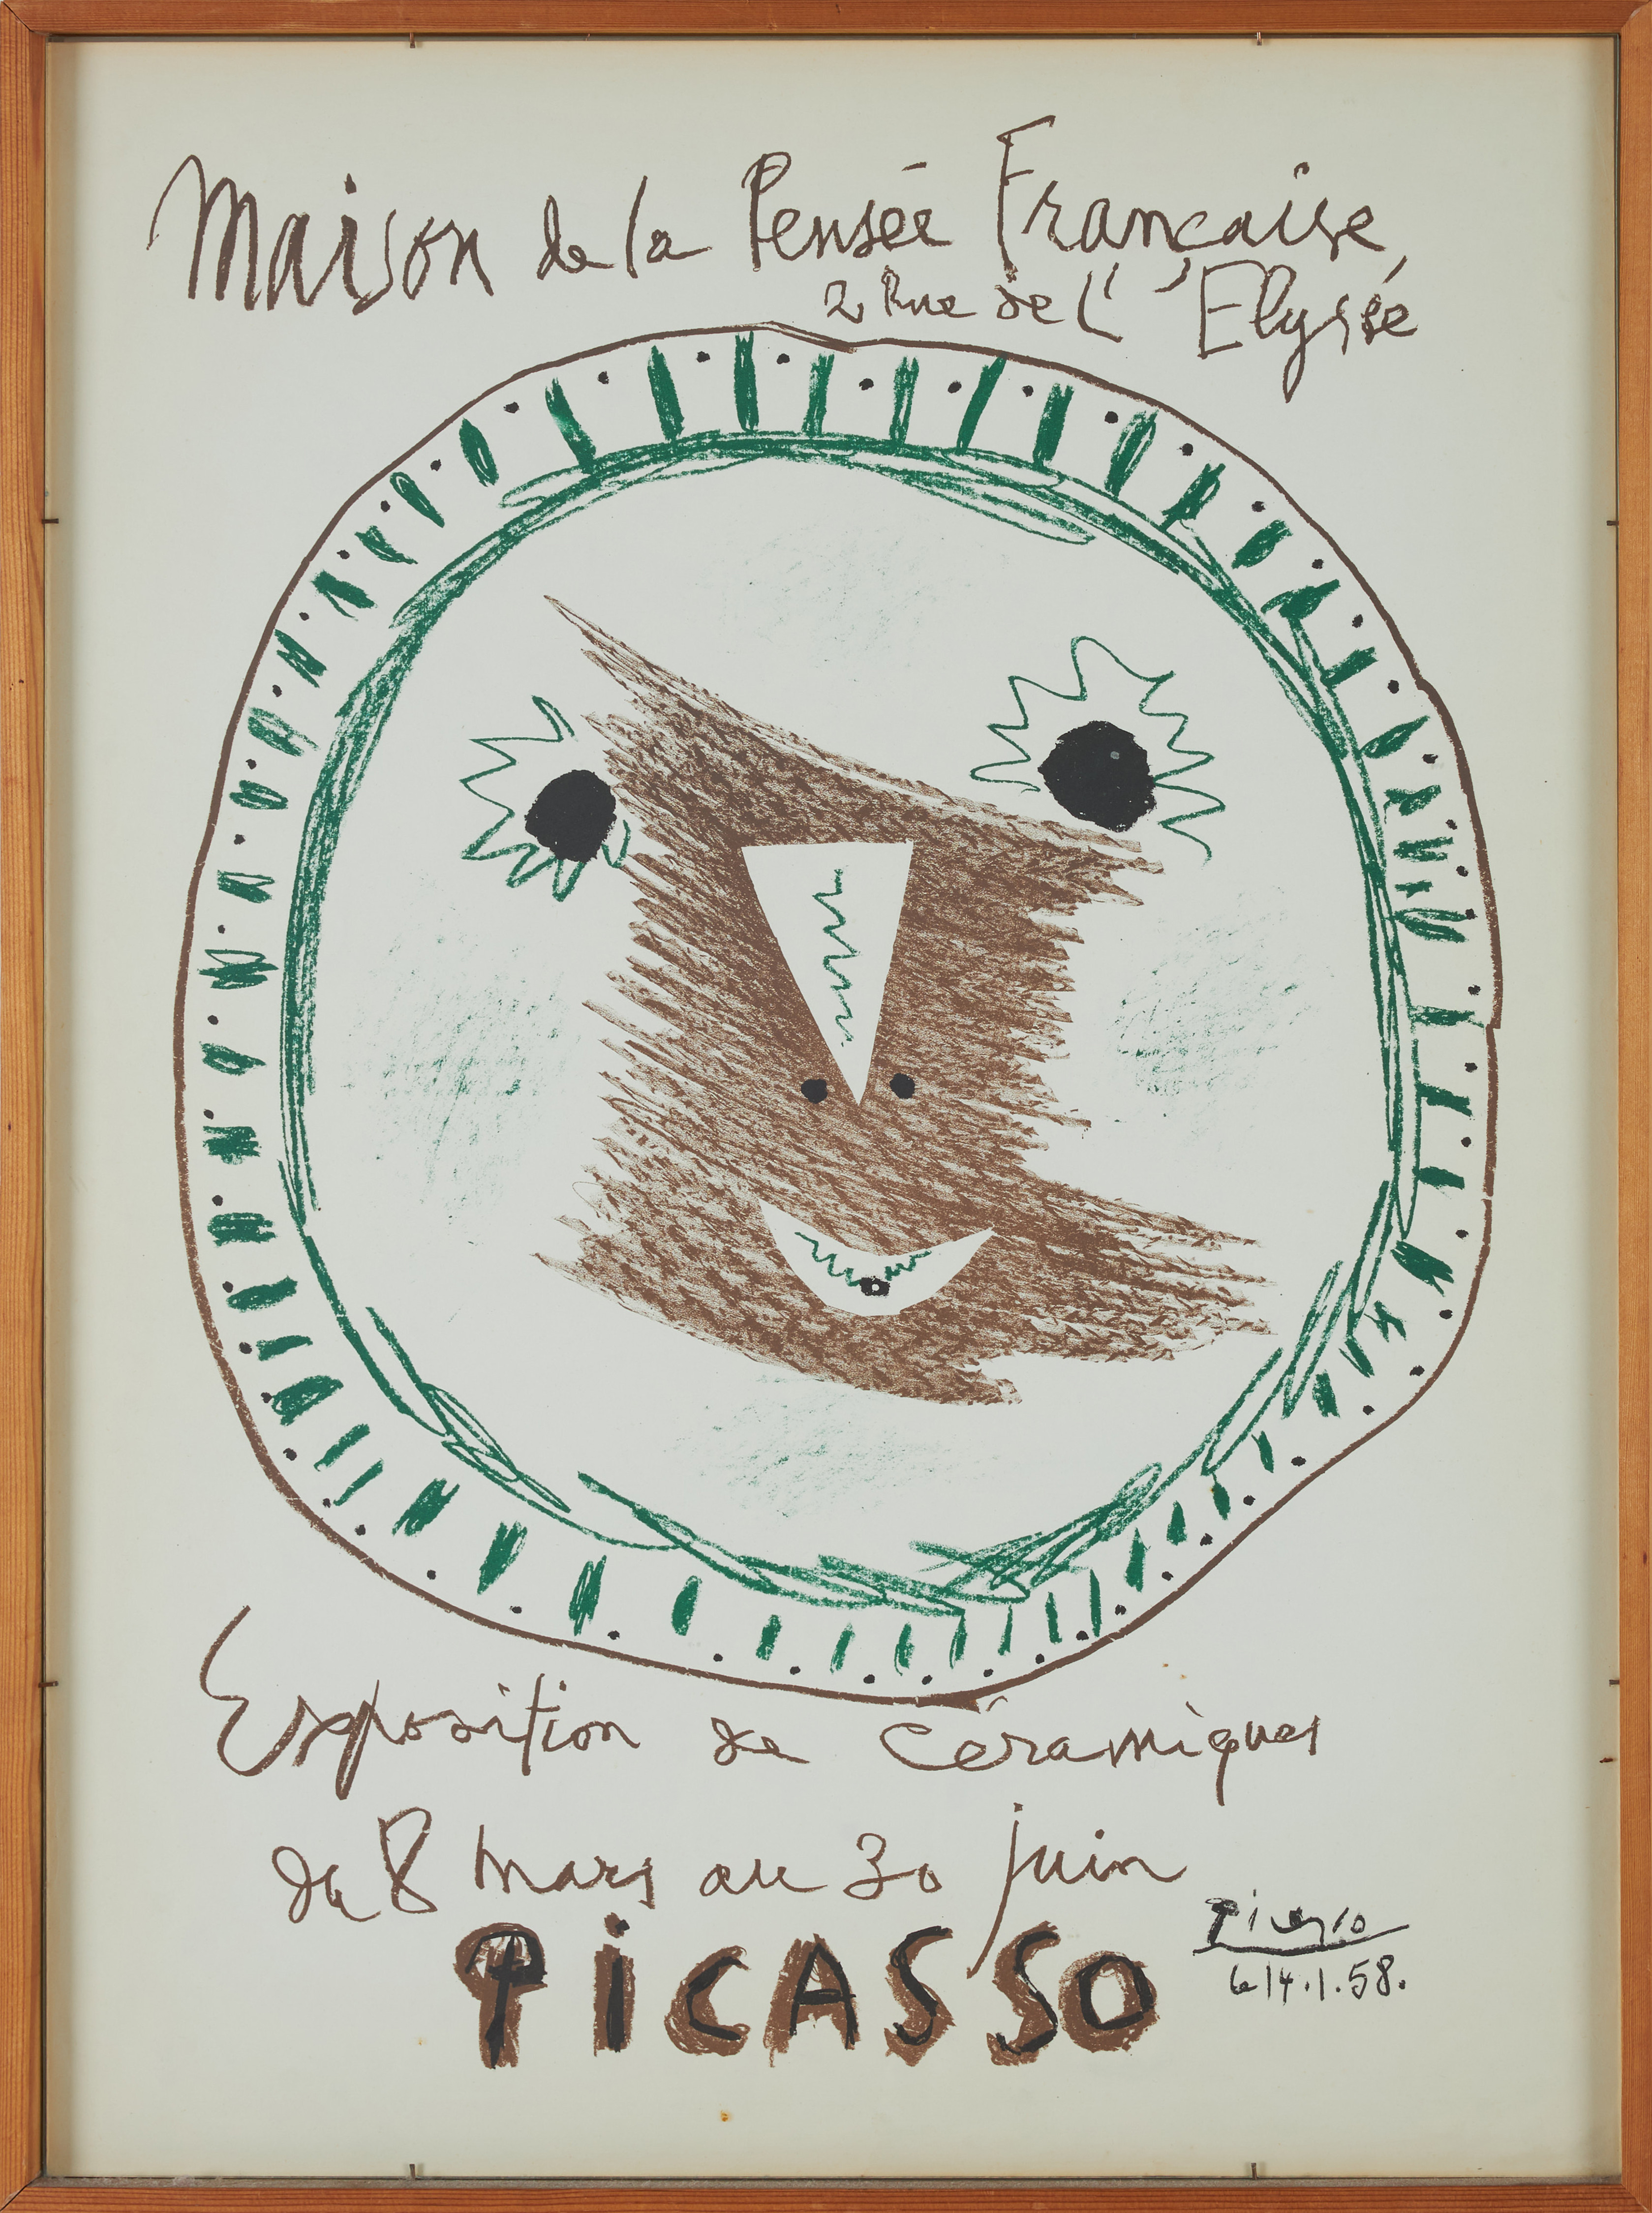 Maison de la Pensée Française,
2 Rue de L'Elysée
Exposition de Céramiques
du 8 mars au 30 juin
PiCASSO
Picasso
le 14.1.58.